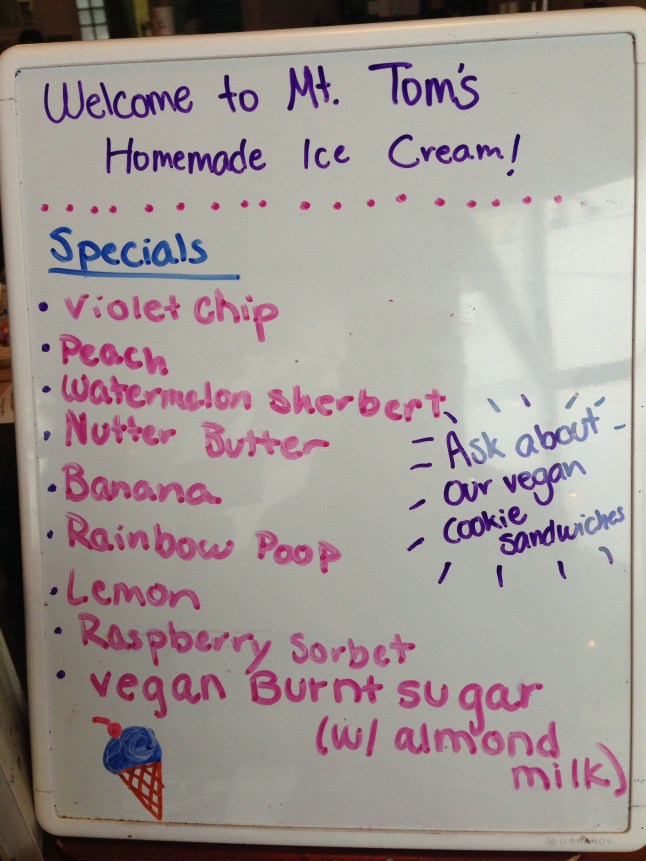 Welcome to Mt. Tom's
Homemade Ice Cream!
Specials
• Violet Chip
• Peach
• Watermelon Sherbert
• Nutter Butter
• Banana
• Rainbow Poop
• Lemon
• Raspberry Sorbet
• vegan Burnt sugar
(w/ almond
milk)
Ask about
our vegan
cookie
sandwiches
U BRANDS